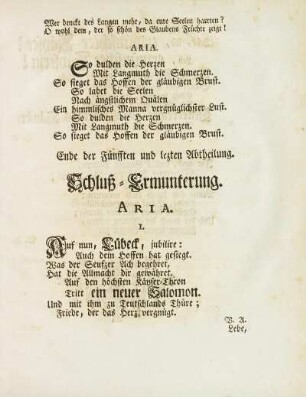 Wer denckt des langen mehr, da eure Seelen harrten?
O wohl dem, der so schön des Glaubens Früchte zeigt!
ARIA.
So dulden die Herzen
Mit Langmuth die Schmerzen.
So sieget das Hoffen der gläubigen Brust.
So labet die Seelen
Nach ängstlichem Quälen
Ein himmlisches Manna vergnüglichster Lust.
So dulden die Herzen
Mit Langmuth die Schmerzen.
So sieget das Hoffen der gläubigen Brust.
Ende der Fünfften und lezten Abtheilung.
Schluß-Ermunterung.
ARIA.
I.
Auf nun, Lübeck, jubilire:
Auch dein Hoffen hat gesiegt.
Was der Seufzer Ach begehret,
Hat die Allmacht dir gewähret.
Auf den höchsten Käyser-Thron
Tritt ein neuer Salomon.
Und mit ihm zu Teutschlands Thüre;
Friede, der das Herz vergnügt.
V. A.
Lebe,